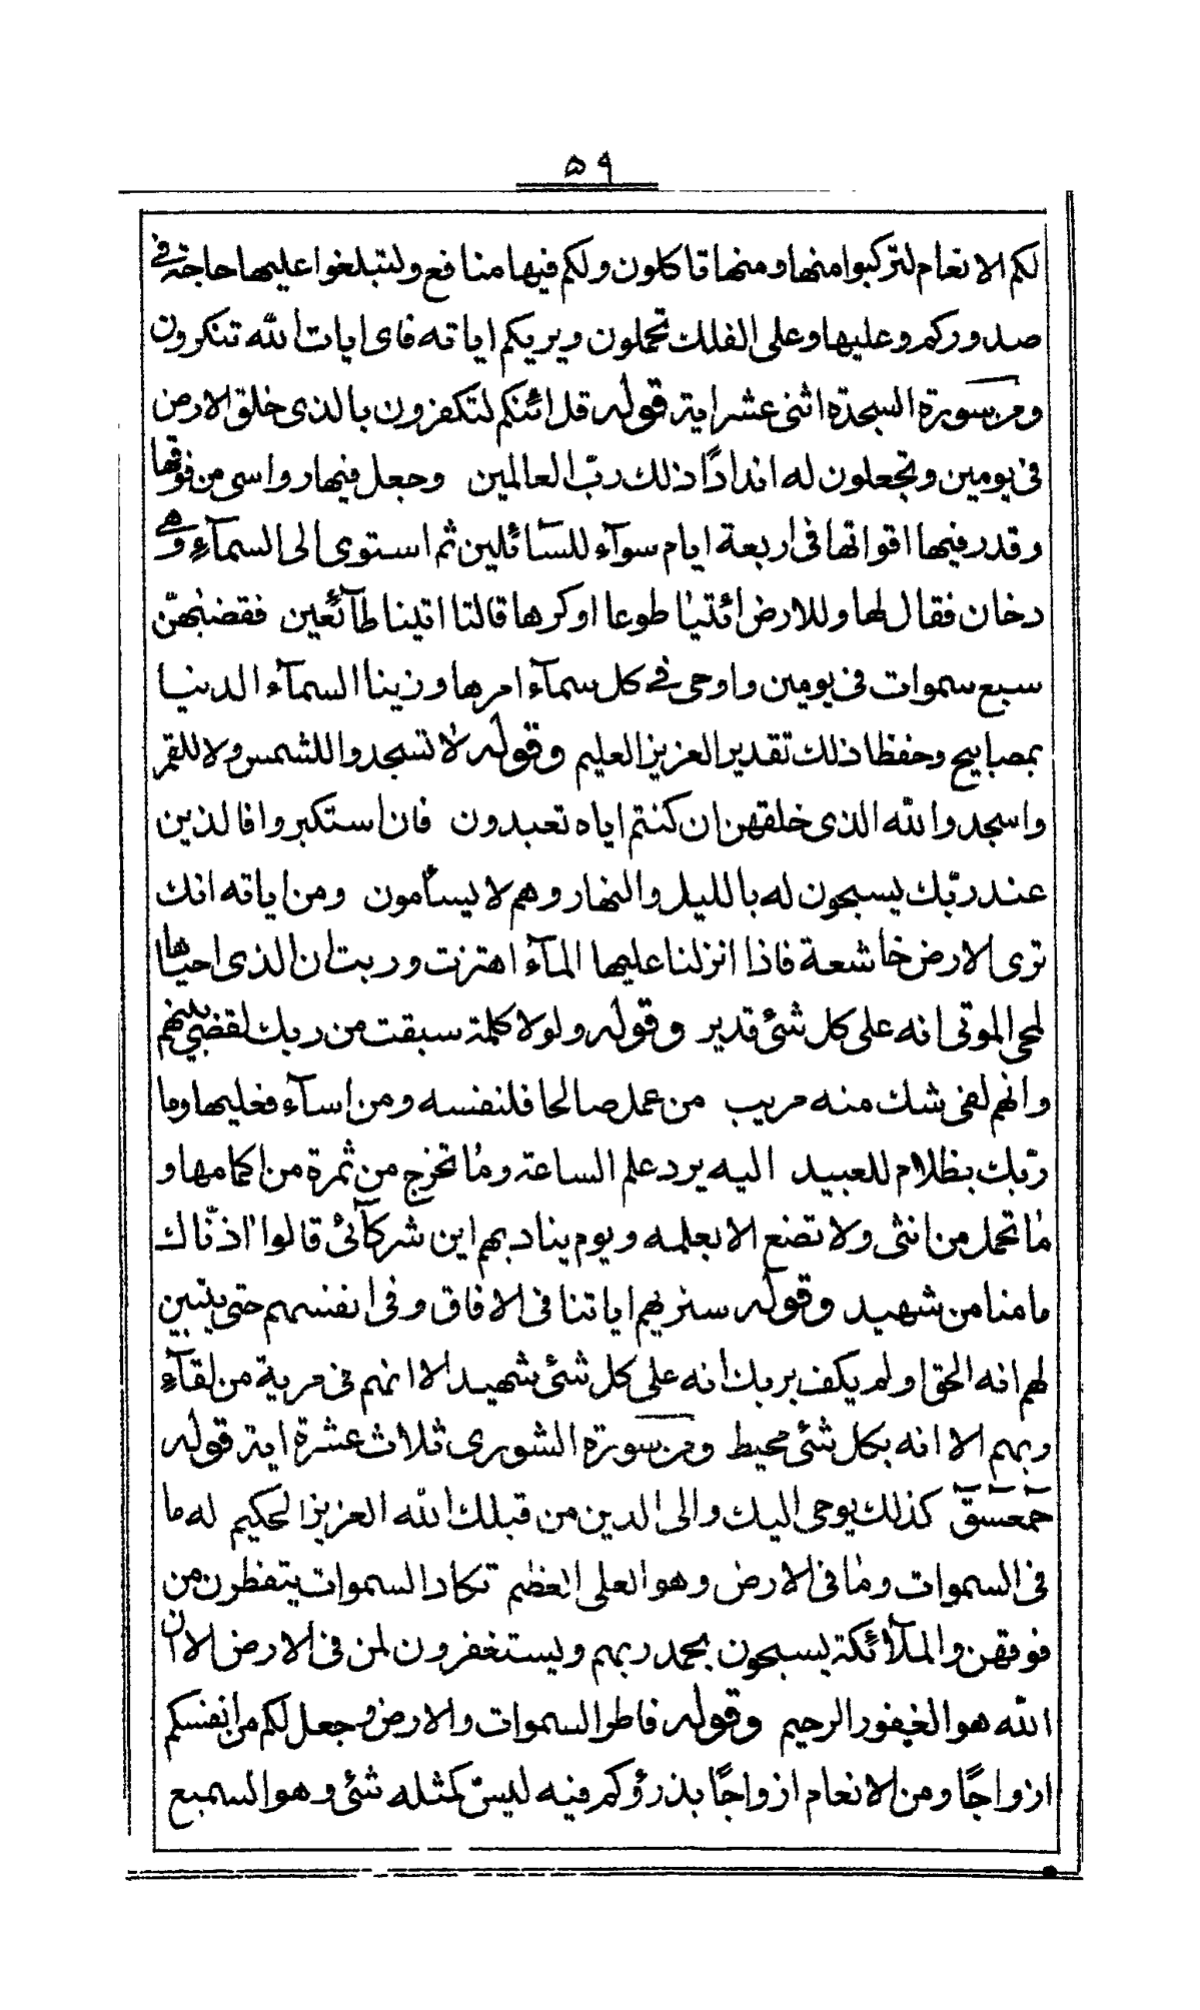 ۵۹
لكم الانعام لتركبوا منها ومنها تاكلون ولكم فيها منافع ولتبلغوا عليها حاجة في
صدوركم وعليها وعلى الفلك تحملون ويريكم اياته فاى ايات الله تنكرون
ومن سورة السجدة اثنى عشر اية قوله قل ائنكم لتكفرون بالذى خلق الارض
فى يومين وتجعلون له اندادًا ذلك ربّ العالمين وجعل فيها رواسى من فوقها
وقدر فيها اقواتها فى اربعة ايام سوآء للسّآئلين ثم استوى الى السمآء وهى
دخان فقال لها وللارض ائتيا طوعا اوكرها قالتا اتينا طآئعين فقضيهنّ
سبع سموات فى يومين واوحى في كل سمآء امرها وزينا السمآء الدنيا
بمصابيح وحفظا ذلك تقدير العزيز العليم وقوله لا تسجدوا للشمس ولا للقمر
واسجدوا لله الذى خلقهن ان كنتم اياه تعبدون فان استكبروا فالذين
عند ربّك يسبحون له بالليل والنهار وهم لا يسأمون ومن اياته انك
ترى الارض خاشعة فاذا انزلنا عليها المآء اهتزت وربت ان الذى احياها
لمحى الموتى انه على كل شئ قدير وقوله ولولا كلمة سبقت من ربك لقضى بينهم
وانهم لفى شك منه مريب من عمل صالحا فلنفسه ومن اسآء فعليها وما
ربّك بظلام للعبيد اليه يرد علم الساعة وما تخرج من ثمرة من اكمامها و
ما تحمل من انثى ولا تضع الا بعلمه ويوم يناديهم اين شركآئى قالوا اذنّاك
مامنا من شهيد وقوله سنريهم اياتنا فى الافاق وفى انفسهم حتى يتبين
لهم انه الحق اولم يكف بربك انه على كل شئ شهيد الا انهم فى مرية من لقآء
ربهم الا انه بكل شئ محيط ومن سورة الشورى ثلاث عشرة اية قوله
حمعسق كذلك يوحى اليك والى الذين من قبلك الله العزيز الحكيم له ما
فى السموات وما فى الارض وهو العلى العظيم تكاد السموات يتفطرن من
فوقهن والملآئكة يسبحون بحمد ربهم ويستغفرون لمن فى الارض الا ان
الله هو الغفور الرحيم وقوله فاطر السموات والارض وجعل لكم من انفسكم
ازواجًا ومن الانعام ازواجًا يذرؤكم فيه ليس كمثله شئ وهو السميع